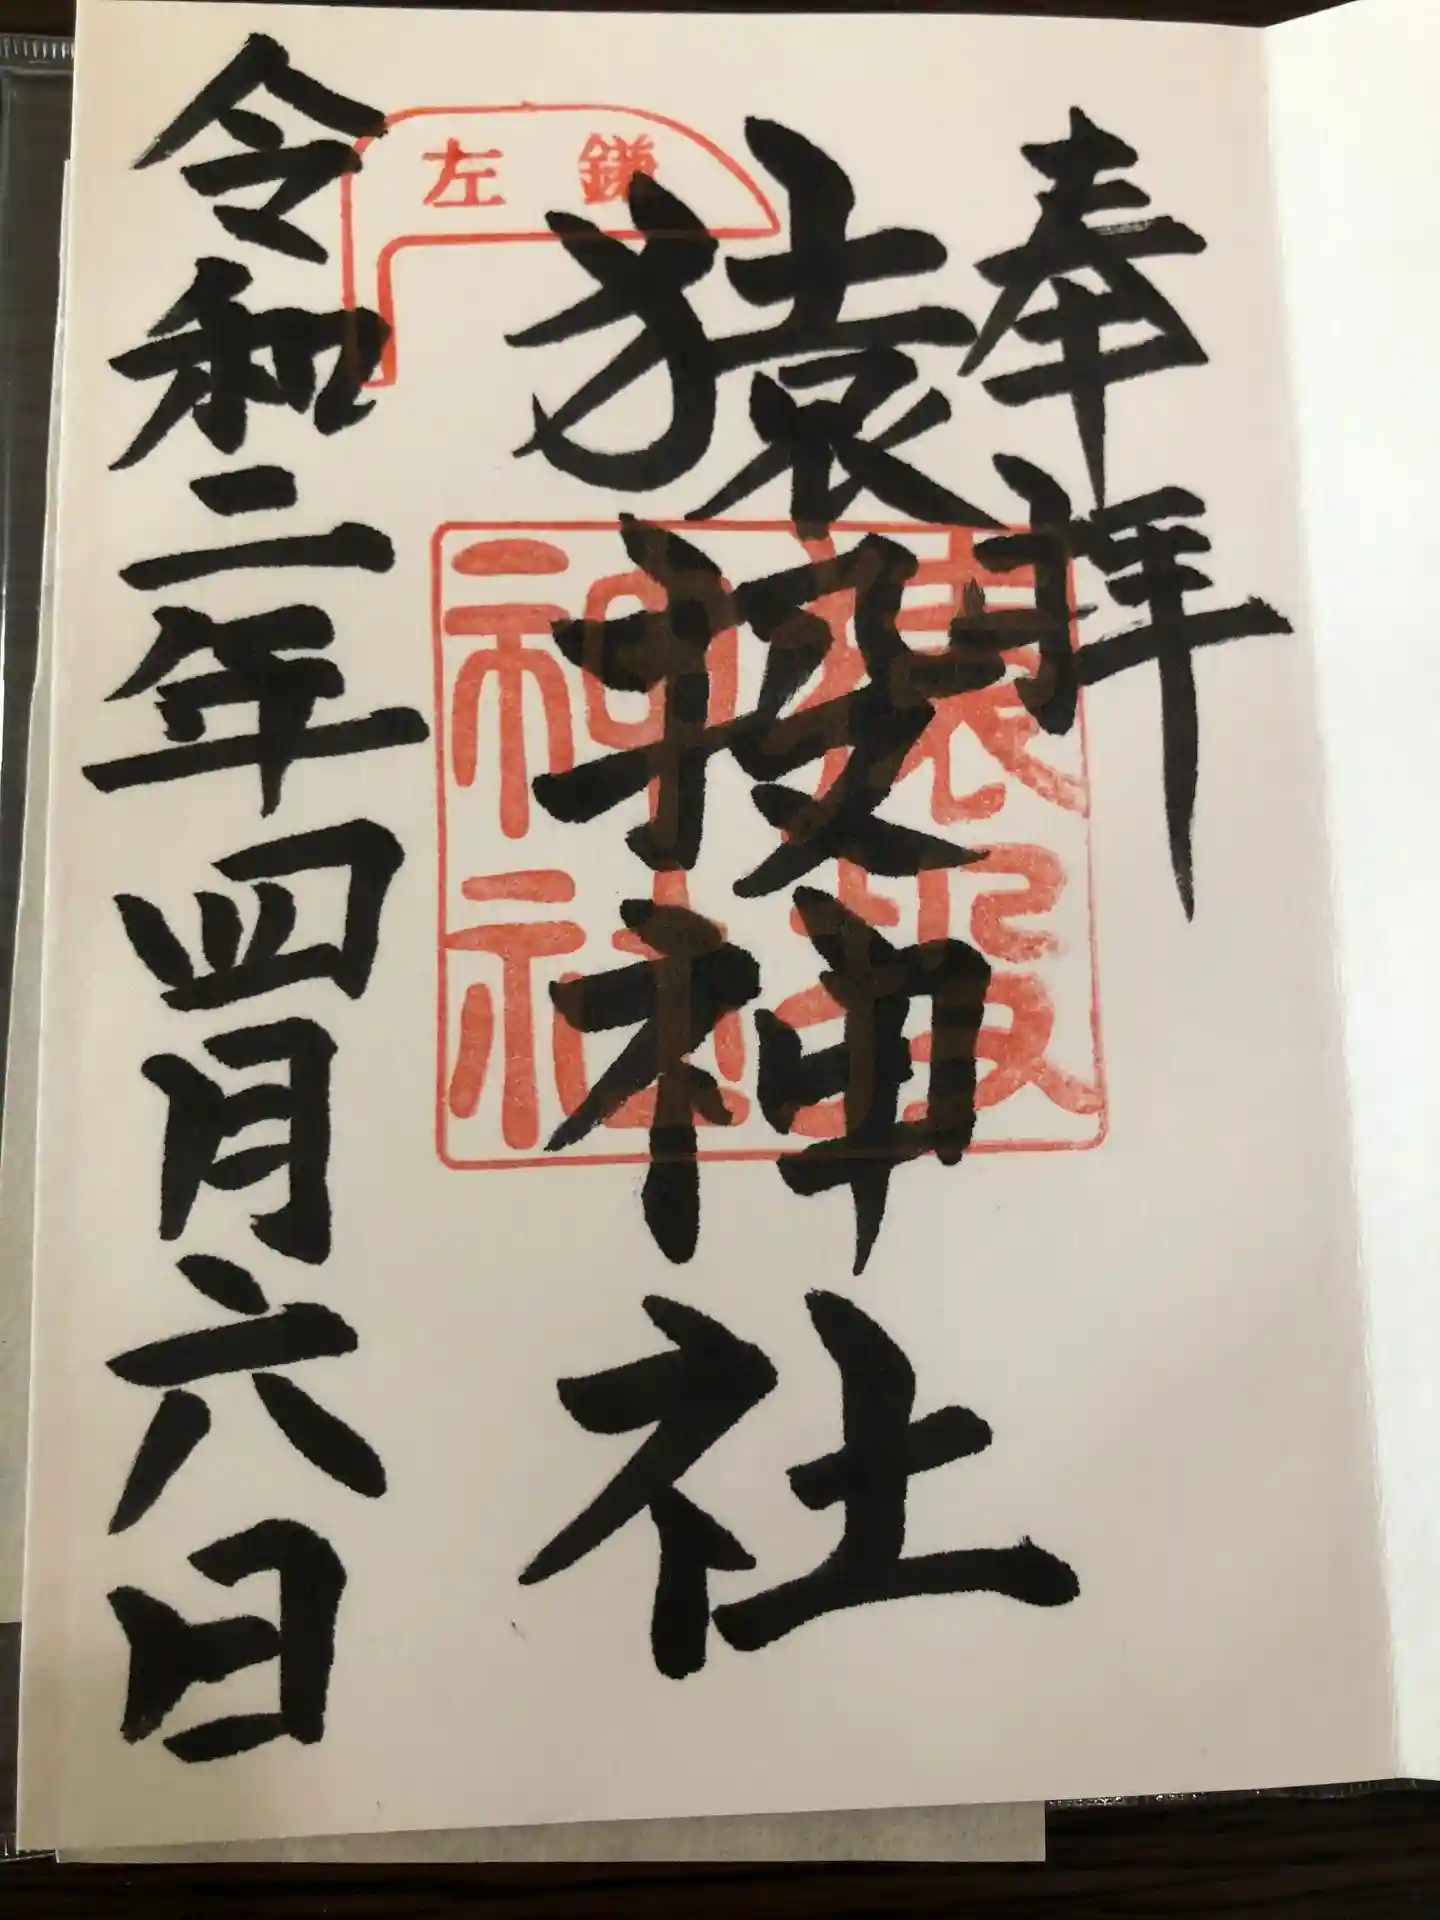 奉拝
猿投神社
令和二年四月六日
左鎌
猿投神社